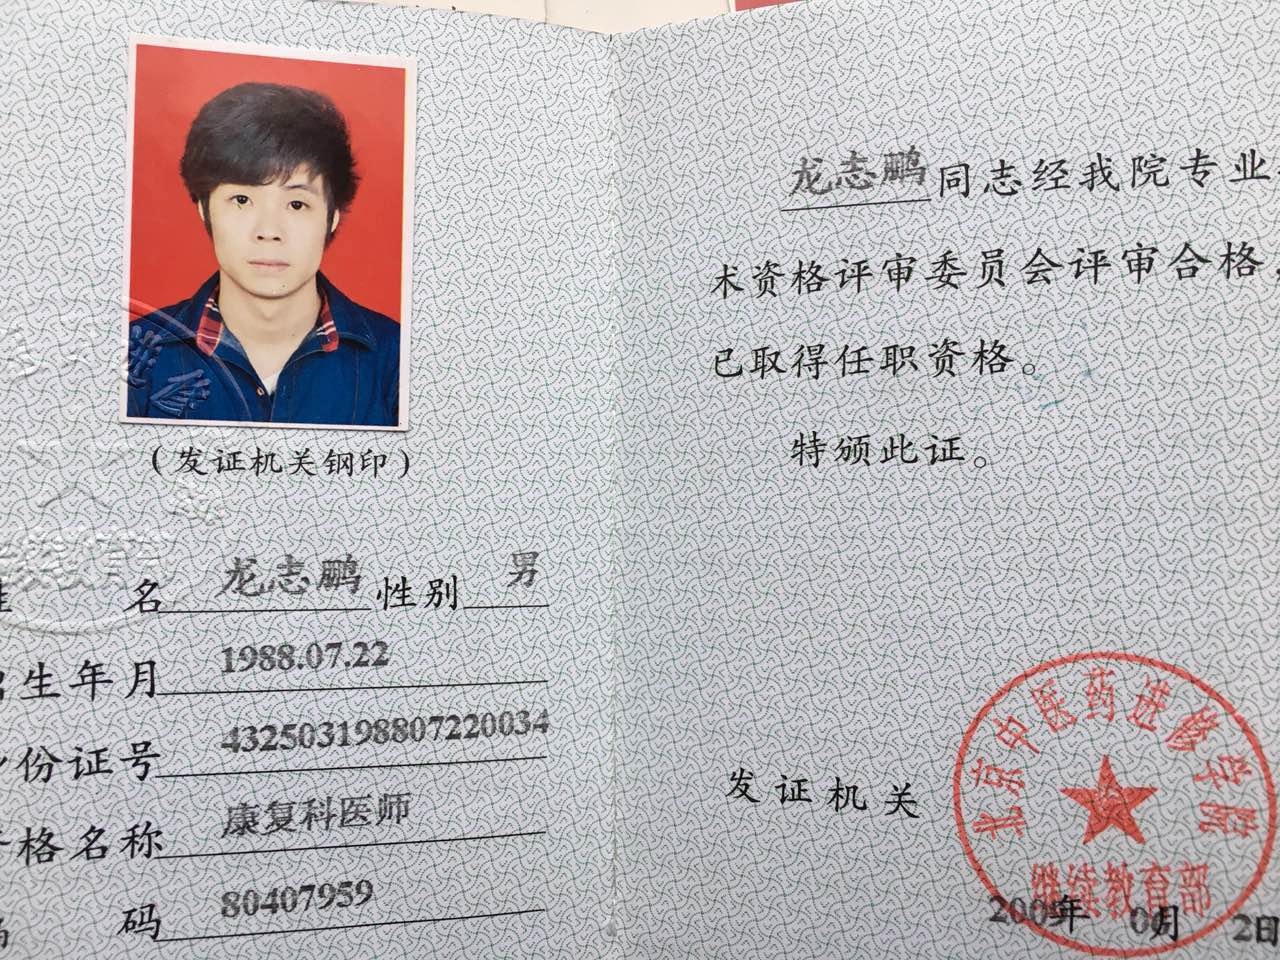 (发证机关钢印)
名 龙志鹏 性别 男
生年月 1988.07.22
份证号 432503198807220034
格名称 康复科医师
码 80407959
龙志鹏同志经我院专业
术资格评审委员会评审合格,
已取得任职资格。
特颁此证。
发证机关
北京中医药进修学院
继续教育部
年 月 2日